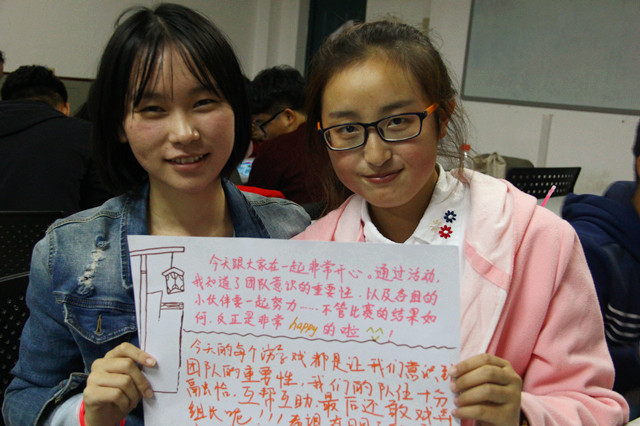 今天跟大家在一起非常开心。通过活动,
我知道了团队意识的重要性,以及各组的
小伙伴要一起努力……不管比赛的结果如
何,反正是非常happy的啦
今天的每个游戏都是让我们意识到
团队的重要性,我们的队伍十分
融洽,互帮互助,最后还敢戏弄
组长呢!!!